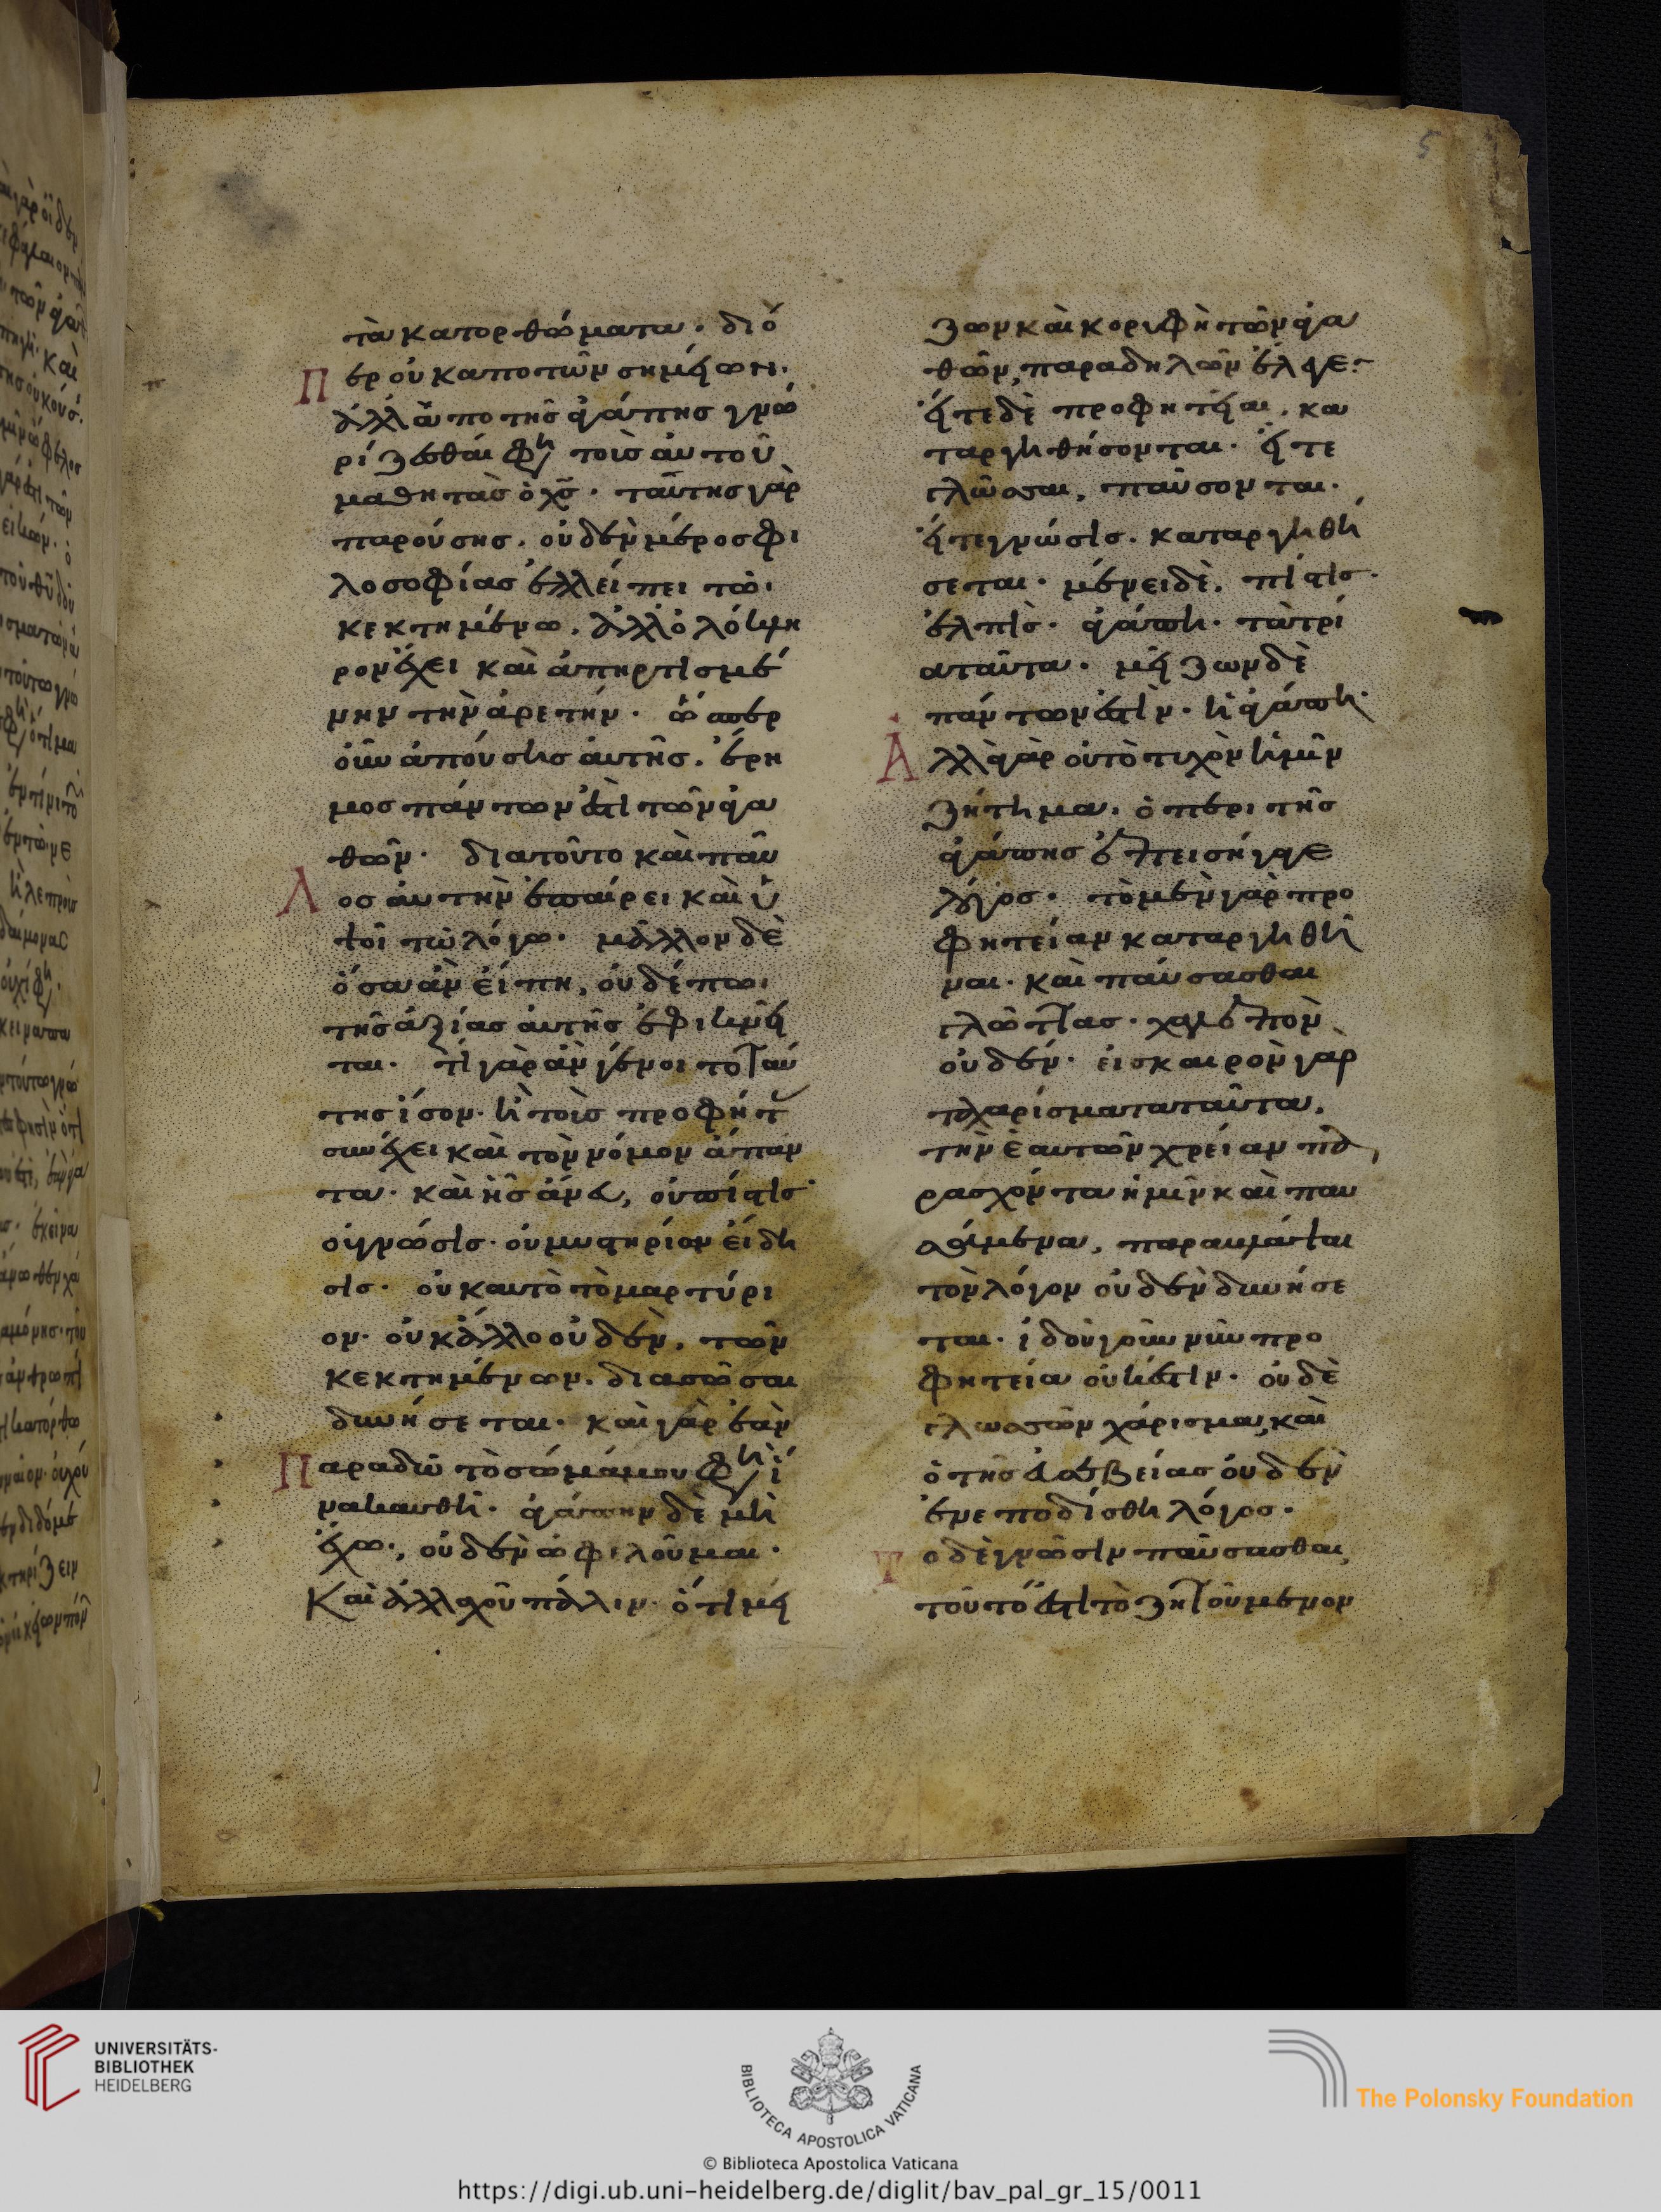 τὰ κατορθώματα. διό
περ οὐκ ἀπὸ τῶν σημείων.
ἀλλ' ἀπὸ τῆς ἀγάπης γνω
ρίζεσθαί φη τοῖς αὐτοῦ
μαθητὰς ὁ χς. ταύτης γὰρ
παρούσης. οὐδὲν μέρος φι
λοσοφίας ἐλλείπει τῶ
κεκτημένω. ἀλλ' ὁλόκλη
ρον ἔχει καὶ ἀπηρτισμέ
νην τὴν ἀρετήν. ὥσπερ
οὖν ἀπούσης αὐτῆς. ἔρη
μος πάντων ἐστὶ τῶν ἀγα
θῶν. διατοῦτο καὶ παῦ
λος αὐτὴν ἐπαίρει καὶ ὑ
ψοῖ τῶ λόγω. μᾶλλον δὲ
ὅσα ἂν εἴπη, οὐδέπω
τῆς ἀξίας αὐτῆς ἐφικνεῖ
ται. τί γὰρ ἂν γένοιτο ταύ
της ἴσον. ἢ τοῖς προφήτ
συνέχει καὶ τὸν νόμον ἅπαν
τα. καὶ ἧς ἄνευ, οὐ πίστις
οὐ γνῶσις. οὐ μυστηρίων εἴδη
σις. οὐκ αὐτὸ τὸ μαρτύρι
ον. οὐκ ἄλλο οὐδὲν, τῶν
κεκτημένων. διασῶσαι
δυνήσεται. καὶ γὰρ ἐὰν
Παραδῶ τὸ σῶμά μου φη ἵ
να καυθῆ. ἀγάπην δὲ μὴ
ἔχω., οὐδὲν ὠφελοῦμαι.
Καὶ ἀλλαχοῦ πάλιν. ὅτι μεί
ζων καὶ κορυφὴ τῶν ἀγα
θῶν, παραδηλῶν ἔλεγε:
εἴτε δὲ προφητεῖαι. κα
ταργηθήσονται. εἴτε
γλῶσσαι, παύσονται.
εἴτε γνώσις. καταργηθή
σεται. μένει δὲ. πίστις.
ἐλπὶς. ἀγάπη. τὰ τρί
α ταῦτα. μείζων δὲ
πάντων ἐστὶν. ἡ ἀγάπη.
Ἀλλὰ γὰρ οὐ τὸ τυχὸν ἡμῖν
ζήτημα. ὁ περὶ τῆς
ἀγάπης ἐπεισήγαγε
λόγος. τὸ μὲν γὰρ προ
φητείαν καταργηθῆ
ναι. καὶ παύσασθαι
γλώττας. χαλεπὸν
οὐδέν. εἰς καιρὸν γὰρ
τὰ χαρίσματα ταῦτα,
τὴν ἑαυτῶν χρείαν πα
ρασχόντα ἡμῖν καὶ παυ
σάμενα, παραβλάψαι
τὸν λόγον οὐδὲν δυνήσε
ται. ἰδοὺ γοῦν νῦν προ
φητεία οὐκ ἔστιν. οὐδὲ
γλωσσῶν χάρισμα, καὶ
ὁ τῆς εὐσεβείας οὐδὲν
ἐνεποδίσθη λόγος.
Το δὲ γνῶσιν παύσασθαι,
τοῦτό ἐστι τὸ ζητούμενον
5
UNIVERSITÄTS-
BIBLIOTHEK
HEIDELBERG
BIBLIOTECA APOSTOLICA VATICANA
The Polonsky Foundation
© Biblioteca Apostolica Vaticana
https://digi.ub.uni-heidelberg.de/diglit/bav_pal_gr_15/0011